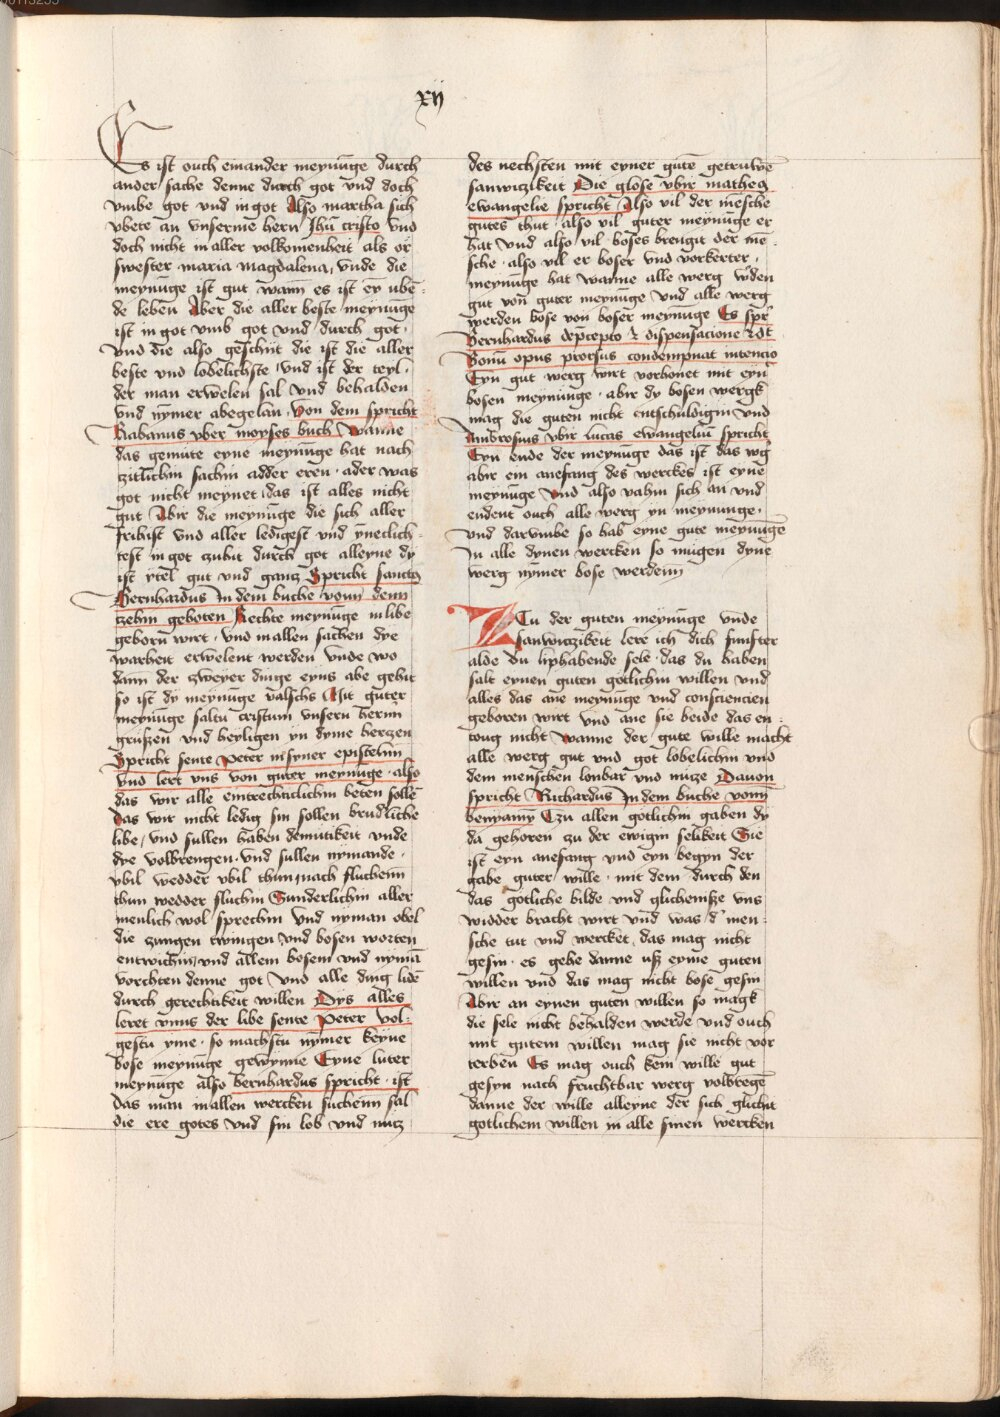 xij
Es ist ouch einander meynu̅ge durch
ander sache denne durch got vnd doch
vmbe got vnd in got Also martha sich
vbete an vnserme hern Jhu̅ cristo vnd
doch nicht in aller volkomenheit als or
swester maria magdalena, vnde die
meynu̅ge ist gut wan̅ es ist ey vbe-
de leben Aber die aller beste meynu̅ge
ist in got vmb got vnd durch got.
vnd die also geschyt die ist die aller
beste vnd lobelichste, vnd ist der teyl.
der man erwelen sal vnd behalden
vnd ny̅mer abegelan. von dem spricht
Rabanus vber moyses buch Wanne
das gemute eyne meynu̅ge hat nach
zitlichin sachin adder eren. ader was
got nicht meynet, das ist alles nicht
gut Abir die meynu̅ge die sich aller
fribist vnd aller ledigest vnd ynneclich-
test in got czubit durch got alleyne dy
ist ytel gut vnd gantz Spricht sanctus
Bernhardus In dem buche vonn denn
tzehin geboten Rechte meynu̅ge in libe
geborn wirt. vnd in allen sachen dye
warheit erwelent werden vnde wo
dann der zweyer dinge eyns abe gehit
so ist dy meynu̅ge valschs Mit guter
meynu̅ge saltu cristum vnsern herrn
grüszen vnd heyligen yn dyme herzen
Spricht sente Peter in syner epistelin
vnd lert vns von guter meynu̅ge. also
das wir alle eintrechticlichin beten solle̅
das wir nicht ledig sin sollen brudirliche
libe, vnd sullen haben demutikeit vnde
dye volbrengen. vnd sullen nymande.
vbil wedder vbil thun, nach fluchenn
thun wedder fluchin Sunderlichin aller
menlich wol sprechin vnd nyman obel
die zungen twingen, vnd bosen worten
entwichin, vnd allem bosem vnd nyma̅
vorchten denne got vnd alle ding lide̅
durch gerechtikeit willen Dys alles
leret vnns der libe sente Peter vol-
gestu yme. so machstu ny̅mer keyne
bose meynu̅ge gewynne Eyne luter
meynu̅ge also bernhardus spricht. ist
das man in allen wercken suchenn sal
die ere gotes vnd sin lob vnd nutz
des nechsten mit eyner gute̅ getruwe̅
sanwitzikeit Die glose vbir matheq
ewangelie spricht Also vil der me̅sche
gutes thut. also vil guter meynu̅ge er
hat vnd also vil boses brengit der me̅-
sche. also vil er boser vnd vorkerter.
meynu̅ge hat wanne alle werg w'den
gut von guter meynu̅ge vnd alle werg
werden bose von boser meynu̅ge Es spr'
Bernhardus de p̅cepto et dispensacione
Bonu̅ opus prorsus condempnat intencio
Eyn gut werg wirt vorhonet mit eyn'
bosen meynu̅nge. abir dy bosen wergk
mag die guten nicht entschuldigin vnd
Ambrosius vbir lucas ewangeliu̅ spricht
Eyn ende der meynu̅ge das ist das w'g
abir ein anefang des werckes ist eyne
meynu̅ge vnd also vahin sich an vnd
endent ouch alle werg yn meynunge.
vnd daru̅mbe so hab eyne gute meynu̅ge
In alle dynen wercken so mügen dyne
werg ny̅mer bose werdenn
ZCu der guten meynu̅ge vnde
sanwitzikeit lere ich dich su̅nster
alde du liphabende sele. das du haben
salt eynen guten gotlichin willen vnd
alles das ane meynu̅ge vnd consciencien
geboren wirt vnd ane sie beide das en-
toug nicht Wanne der gute wille macht
alle werg gut vnd got lobelichin vnd
dem menschen lonbar vnd nutze Dauon
spricht Richardus In dem buche vonn
benyamy̅ Czu allen gotlichin gaben dy
da gehoren zu der ewigin selikeit Sie
ist eyn anefang vnd eyn begyn der
gabe guter wille. mit dem durch den
das gotliche bilde vnd glichenisze vns
widder bracht wirt vnd was d' men-
sche tut vnd wercket, das mag nicht
gesin. es gehe danne usz eyme guten
willen vnd das mag nicht bose gesin
Abir an eynen guten willen so magk
die sele nicht behalden werde vnd ouch
mit gutem willen mag sie nicht vor
terben Es mag ouch kein wille gut
gesyn nach fruchtbar werg volbrege̅
danne der wille alleyne der sich glichit
gotlichem willen in alle sinen wercken